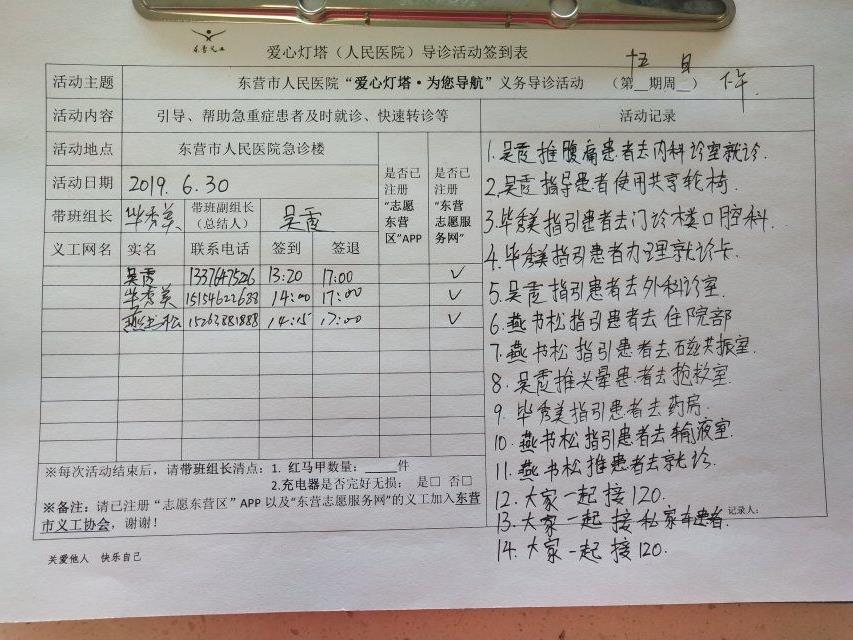 东营义工
爱心灯塔（人民医院）导诊活动签到表
活动主题 东营市人民医院“爱心灯塔·为您导航”义务导诊活动 （第十五期周日） 下午.
活动内容 引导、帮助急重症患者及时就诊、快速转诊等 活动记录
活动地点 东营市人民医院急诊楼
活动日期 2019.6.30
带班组长 毕秀美 带班副组长（总结人） 吴霞
是否已注册“志愿东营区”APP
是否已注册“东营志愿服务网”
义工网名 实名 联系电话 签到 签退
吴霞 13:20 17:00 √
毕秀美 15154622688 14:00 17:00 √
燕书松 15263881888 14:15 17:00 √
1.吴霞推腹痛患者去内科诊室就诊.
2.吴霞指导患者使用共享轮椅.
3.毕秀美指引患者去门诊楼口腔科.
4.毕秀美指引患者办理就诊卡.
5.吴霞指引患者去外科诊室.
6.燕书松指引患者去住院部
7.燕书松指引患者去磁共振室.
8.吴霞推头晕患者去抢救室.
9.毕秀美指引患者去药房.
10.燕书松指引患者去输液室.
11.燕书松推患者去就诊.
12.大家一起接120.
13.大家一起接私家车患者.
记录人：
14.大家一起接120.
※每次活动结束后，请带班组长清点：1. 红马甲数量：____件
2.充电器是否完好无损： 是□ 否□
※备注：请已注册“志愿东营区”APP 以及“东营志愿服务网”的义工加入东营
市义工协会，谢谢！
关爱他人 快乐自己